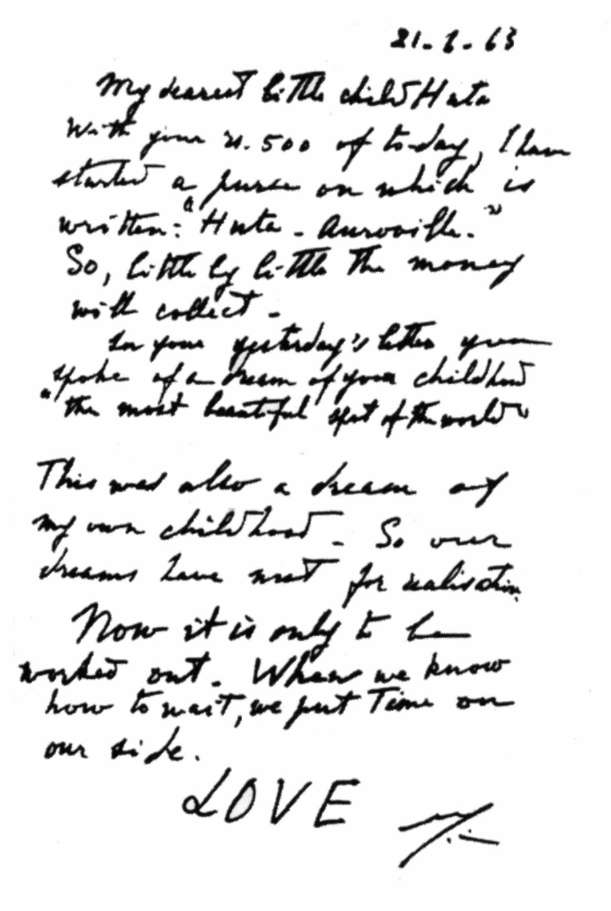 21-6-63
My dearest little child Huta
With your Rs. 500 of to-day, I have
started a purse on which is
written: "Huta - Auroville."
So, little by little the money
will collect -
In your yesterday's letter you
spoke of a dream of your childhood
"the most beautiful spot of the world"
This was also a dream of
my own childhood - So our
dreams have met for realisation.
Now it is only to be
worked out. When we know
how to wait, we put Time on
our side.
LOVE